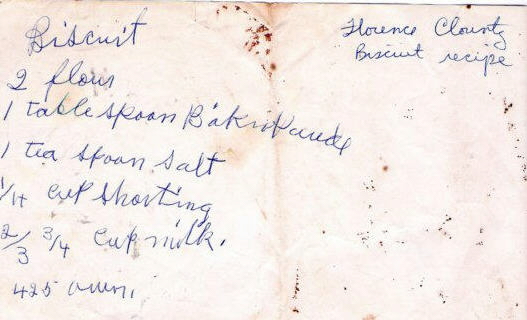 Biscuit
2 flour
1 table spoon Bakn Paude
1 tea spoon salt
1/4 cup shorting
2/3 3/4 cup milk.
425 oven.
Florence Clounty
Biscuit recipe